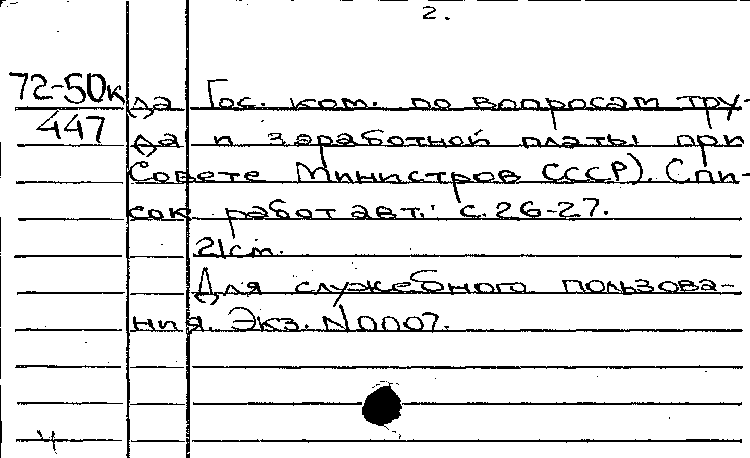 2.
72-50к да Гос. ком. по вопросам тру-
447 да и заработной платы при
Совете Министров СССР). Спи-
сок работ авт.: с. 26-27.
21см.
Для служебного пользова-
ния. Экз. N0007.
ч